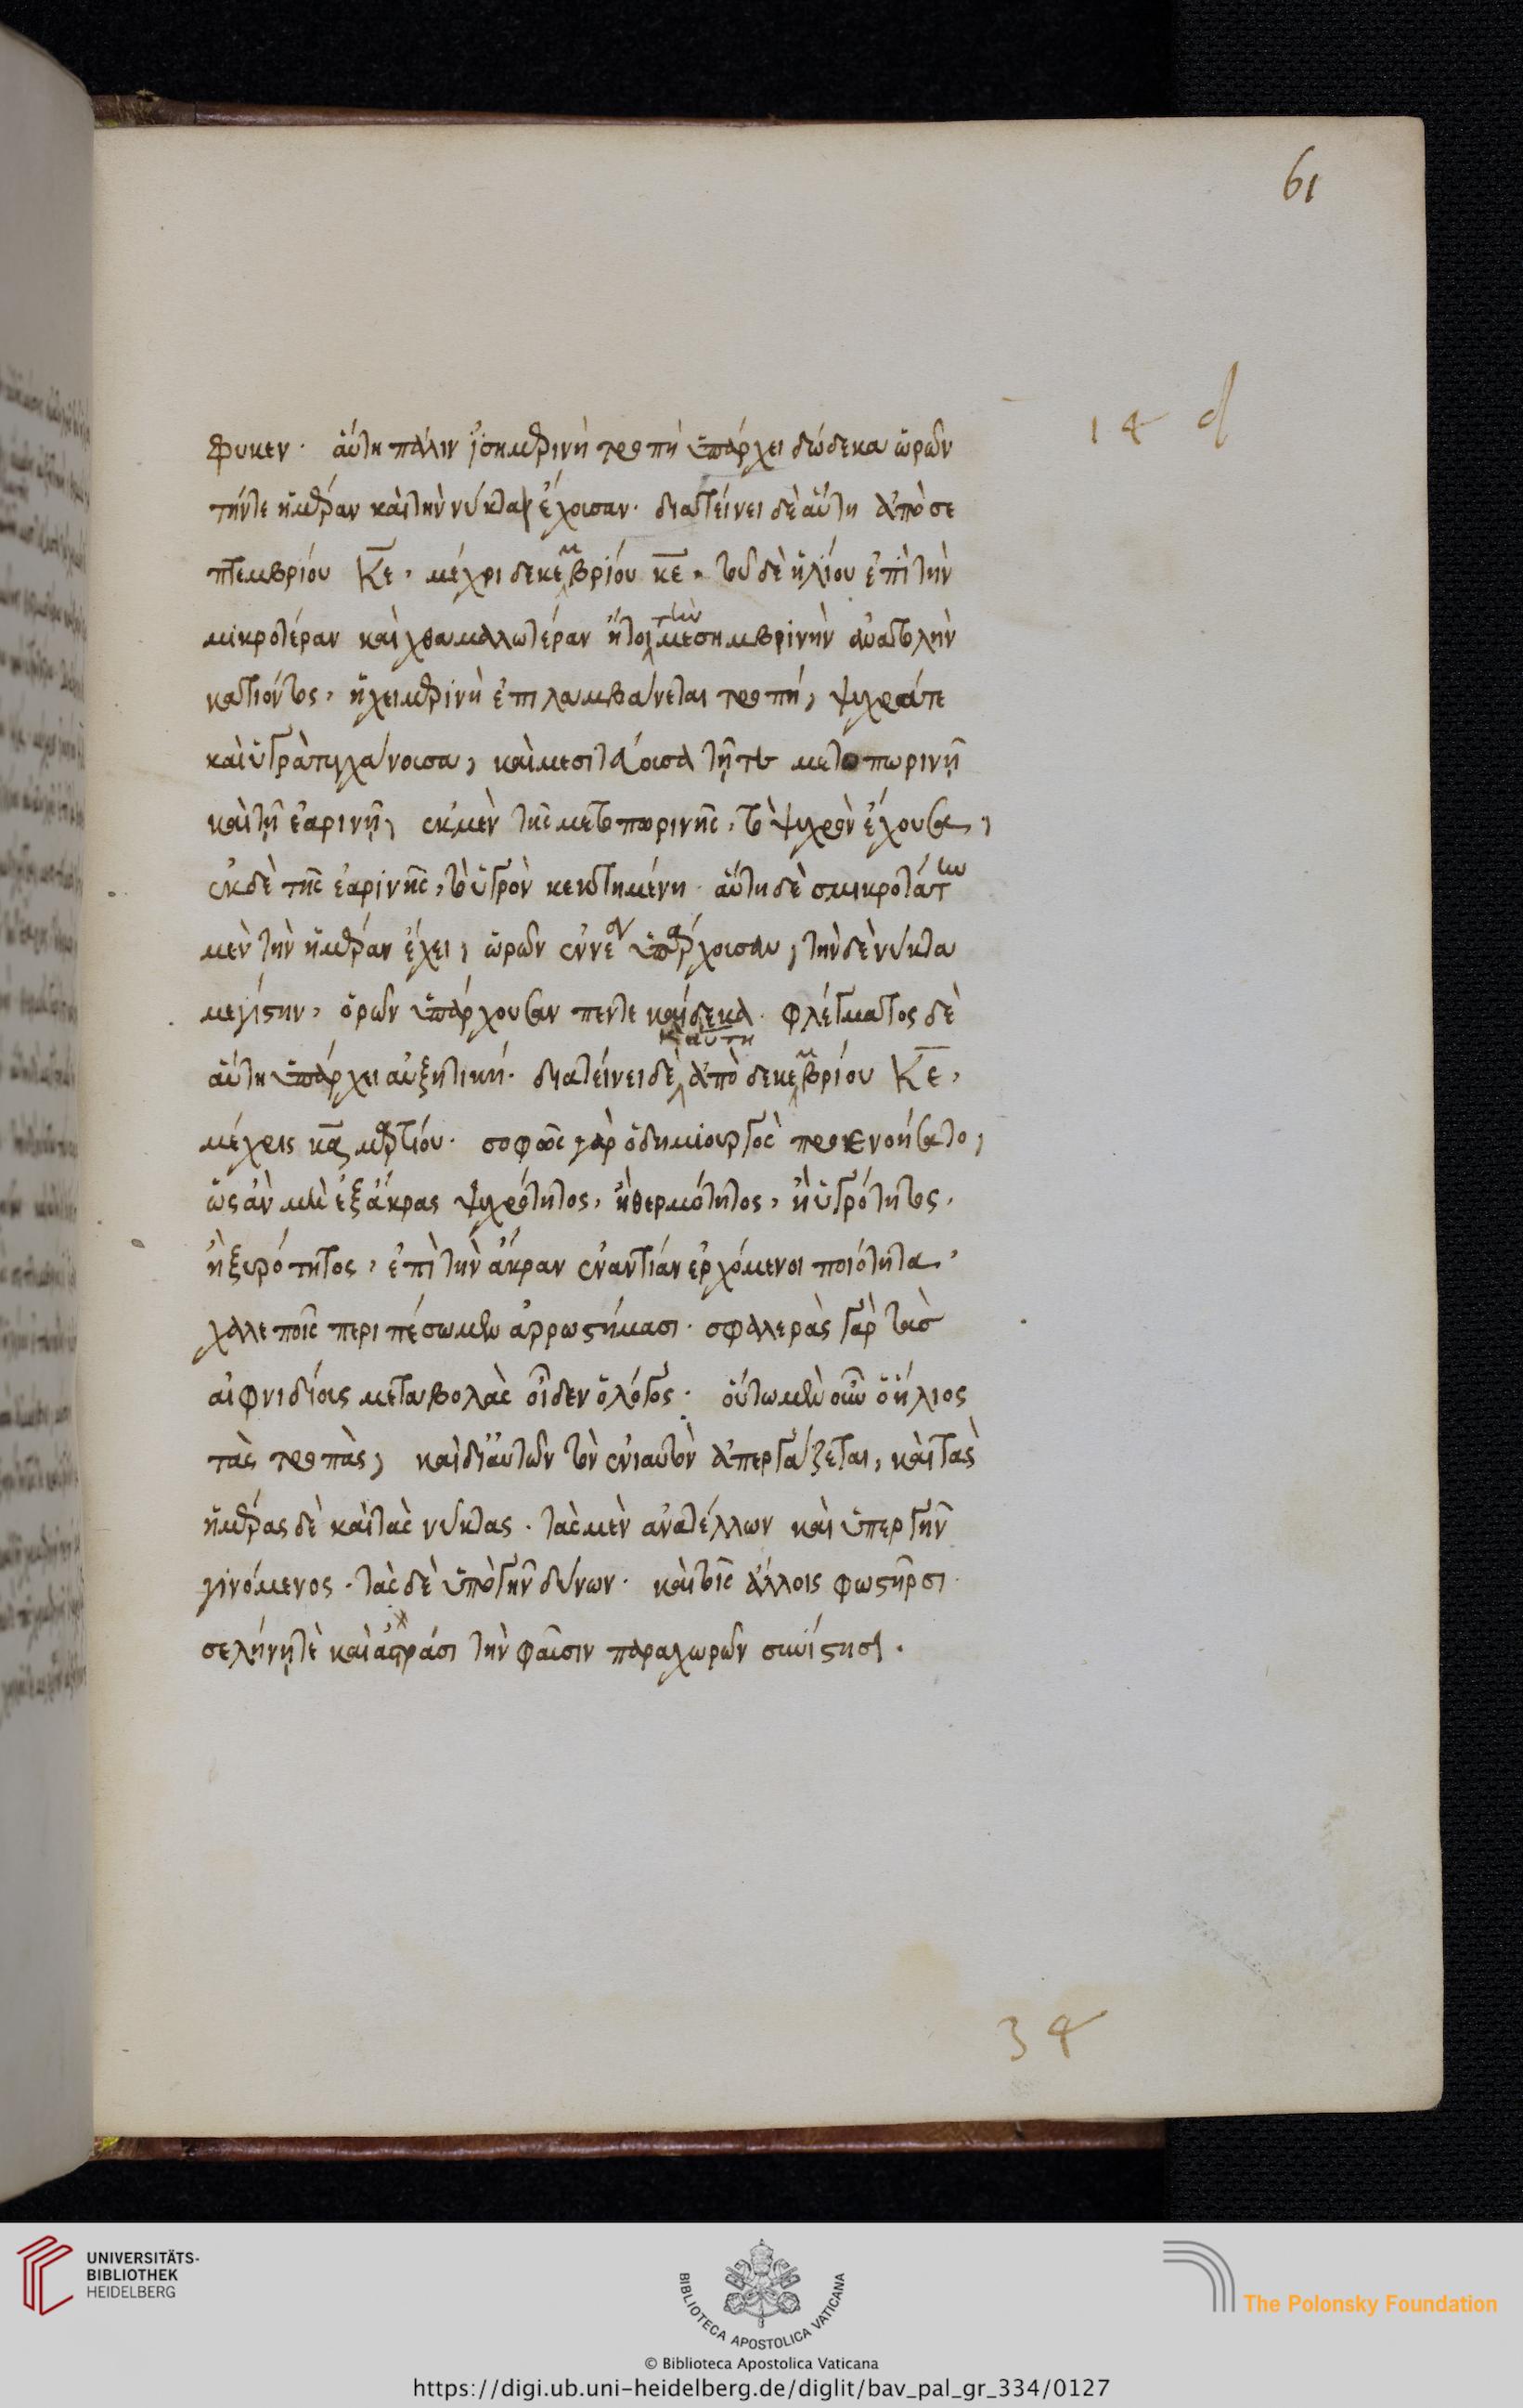 61
14 d
φυκεν. αὕτη πάλιν ἰσημερινὴ τροπὴ ὑπάρχει δώδεκα ὡρῶν
τήν τε ἡμέραν καὶ τὴν νύκτα ἔχουσαν. διατείνει δὲ αὕτη ἀπὸ σε
πτεμβρίου κε, μέχρι δεκεμβρίου κε. τοῦ δὲ ἡλίου ἐπὶ τὴν
μικροτέραν καὶ χθαμαλωτέραν ἤτοι τὴν μεσημβρινὴν ἀνατολὴν
κατιόντος, ἡ χειμερινὴ ἐπιλαμβάνεται τροπή, ψυχρά τε
καὶ ὑγρὰ τυγχάνουσα, καὶ μεσιτεύουσα τῇ τε μετοπωρινῇ
καὶ τῇ ἐαρινῇ, ἐκ μὲν τῆς μετοπωρινῆς, τὸ ψυχρὸν ἔχουσα,
ἐκ δὲ τῆς ἐαρινῆς, τὸ ὑγρὸν κεκτημένη. αὕτη δὲ σμικροτάτην
μὲν τὴν ἡμέραν ἔχει, ὡρῶν ἐννέα ὑπάρχουσαν, τὴν δὲ νύκτα
μεγίστην, ὁρῶν ὑπάρχουσαν πεντε καίδεκα. φλέγματος δὲ
αὕτη ὑπάρχει αὐξητική. διατείνει δὲ κ αὕτη ἀπὸ δεκεμβρίου κε,
μέχρις κα μαρτίου. σοφῶς γὰρ ὁ δημιουργὸς προενοήσατο,
ὡς ἂν μὴ ἐξ ἄκρας ψυχρότητος, ἢ θερμότητος, ἢ ὑγρότητος,
ἢ ξηρότητος, ἐπὶ τὴν ἄκραν ἐναντίαν ἐρχόμενοι ποιότητα,
χαλεποῖς περιπέσωμεν ἀρρωστήμασι. σφαλερὰς γὰρ τὰς
αἰφνιδίους μεταβολὰς οἶδεν ὁ λόγος. οὕτω μὲν οὖν ὁ ἥλιος
τὰς τροπὰς, καὶ δι' αὐτῶν τὸν ἐνιαυτὸν ἀπεργάζεται, καὶ τὰς
ἡμέρας δὲ καὶ τὰς νύκτας. τὰς μὲν ἀνατέλλων καὶ ὑπὲρ γῆν
γινόμενος. τὰς δὲ ὑπὸ γῆν δύνων. καὶ τοῖς ἄλλοις φωστῆρσι
σελήνῃ τὲ καὶ ἀστράσι τὴν φαῦσιν παραχωρῶν συνίστησι.
34
UNIVERSITÄTS-
BIBLIOTHEK
HEIDELBERG
BIBLIOTECA APOSTOLICA VATICANA
The Polonsky Foundation
© Biblioteca Apostolica Vaticana
https://digi.ub.uni-heidelberg.de/diglit/bav_pal_gr_334/0127